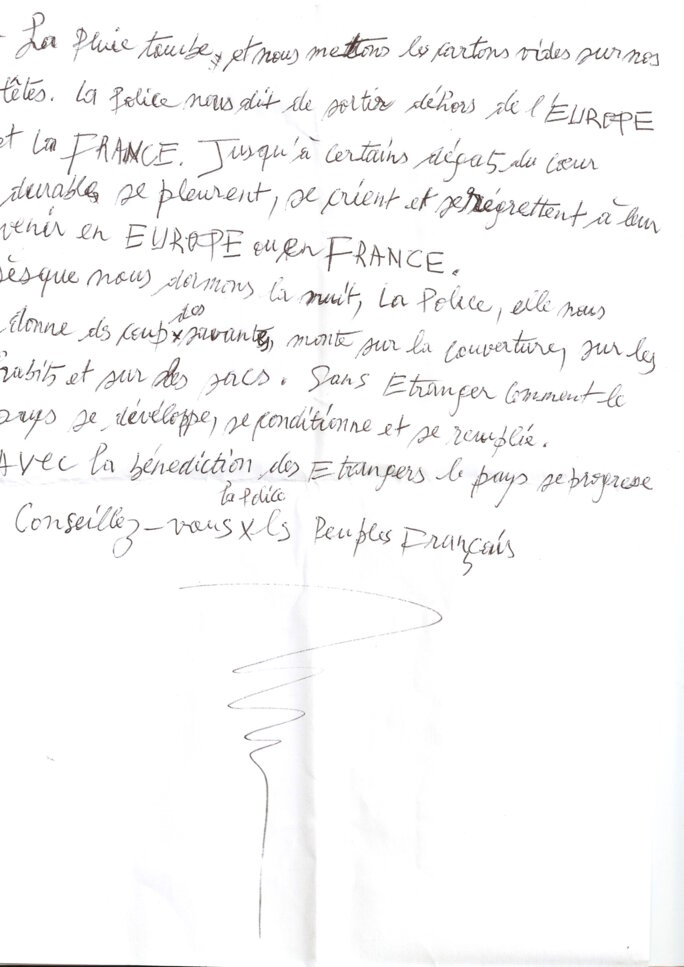 - La Pluie tombe, et nous mettons les cartons vides sur nos
têtes. La Police nous dit de sortir déhors de l'EUROPE
et La FRANCE. Jusqu'à certains dégats du cœur
durables se pleurent, se crient et se régrettent à leur
venir en EUROPE ou en FRANCE.
dès que nous dormons la nuit, La Police, elle nous
donne des coups des savantes, monte sur la couverture, sur les
habits et sur des sacs. Sans Etranger comment le
pays se dévéloppe, se conditionne et se remplie.
AVEC la bénediction des Etrangers le pays se progresse
la Police
Conseillez-vous x ls Peuples Français